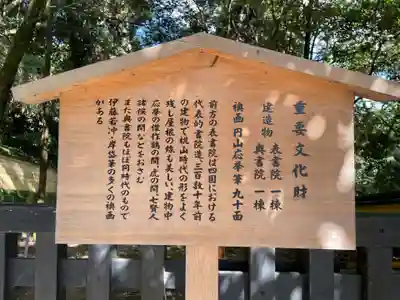 重要文化財
建造物 表書院 一棟
奥書院 一棟
襖画円山応挙筆 九十面
前方の表書院は四国における
代表的書院造、三百数十年前
の建物で桃山時代の形をよく
残し屋根の線も美しい、建物中
応挙の傑作鶴の間、虎の間、七賢人
諸候の間などをおさむ
また奥書院もほぼ同時代のもので
伊藤若冲、岸岱等の多くの襖画
がある